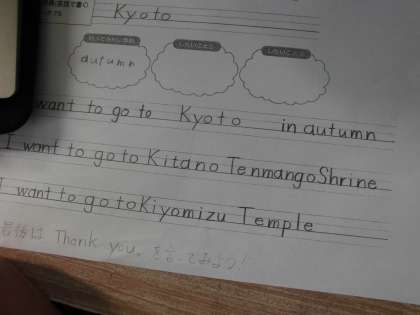 Kyoto
したいこと
したいこと
autumn
want to go to Kyoto in autumn
I want to go to Kitano TenmangoShrine
I want to go to Kiyomizu Temple
最後は Thank you. を言ってみよう!